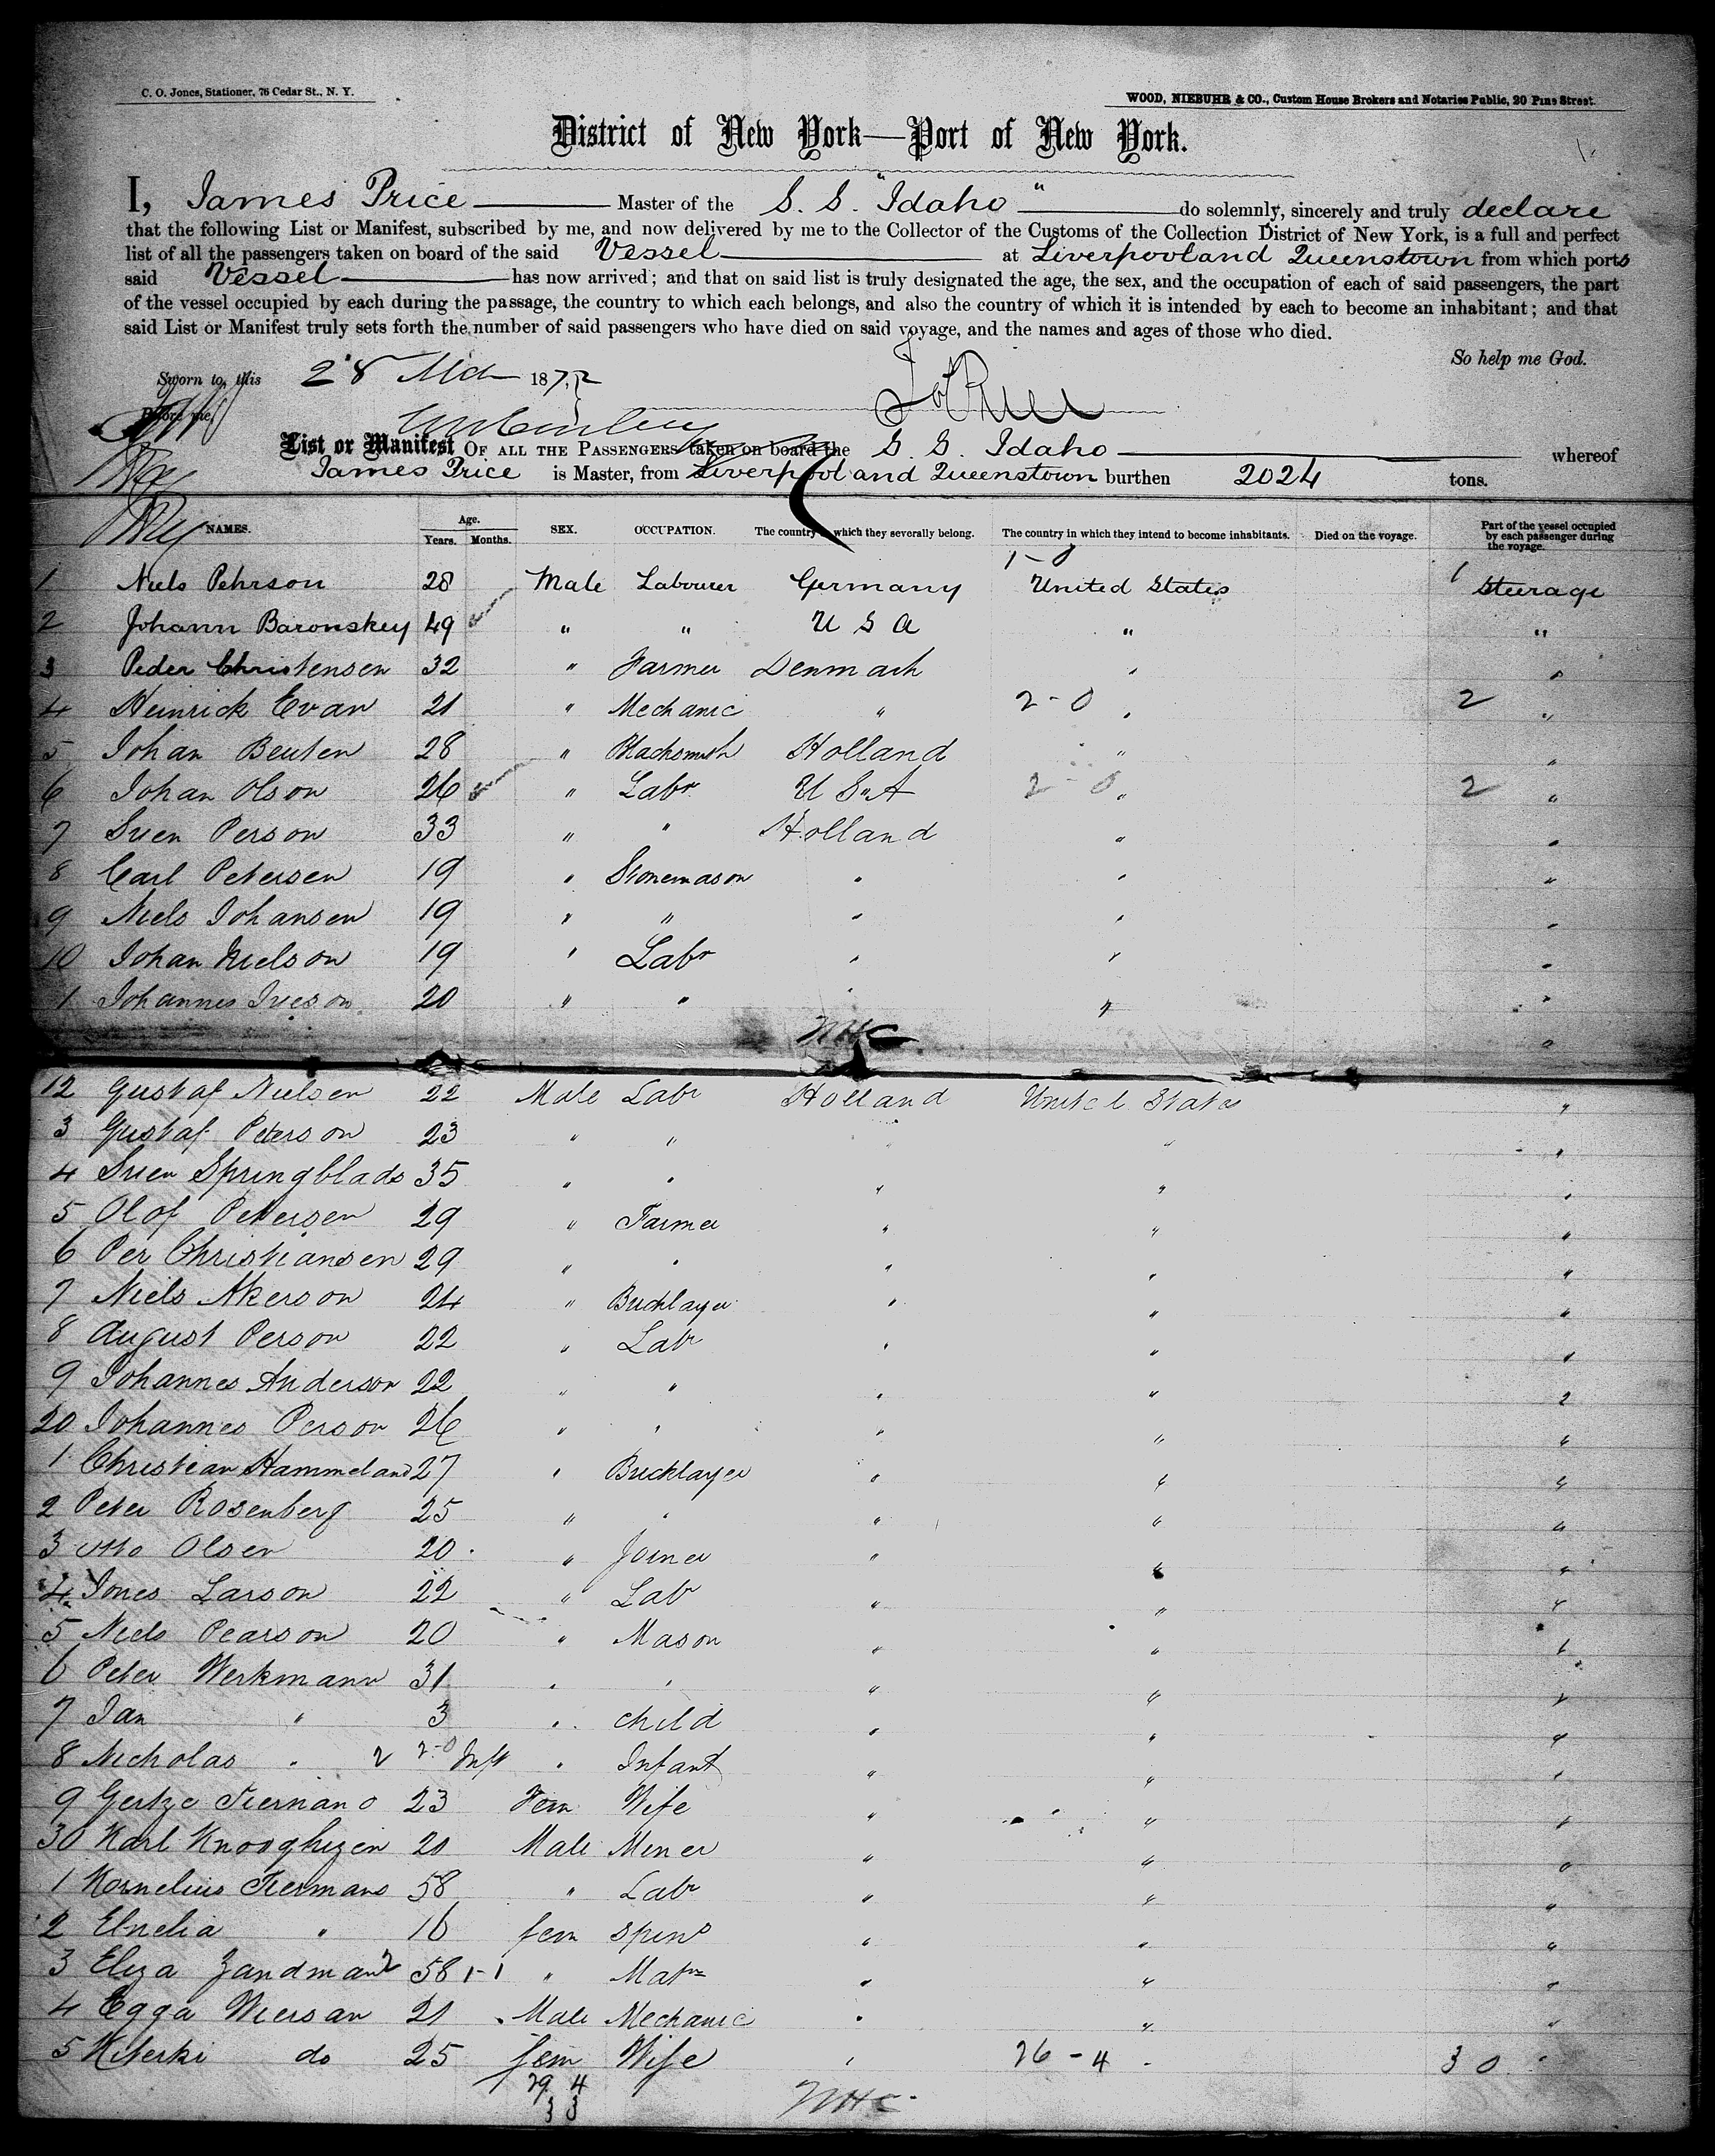 C. O. Jones, Stationer, 76 Cedar St., N. Y.
WOOD, NIEBUHR & CO., Custom House Brokers and Notaries Public, 20 Pine Street.
District of New York—Port of New York.
I, James Price Master of the S. S. "Idaho" do solemnly, sincerely and truly declare
that the following List or Manifest, subscribed by me, and now delivered by me to the Collector of the Customs of the Collection District of New York, is a full and perfect
list of all the passengers taken on board of the said Vessel at Liverpool and Queenstown from which ports
said Vessel has now arrived; and that on said list is truly designated the age, the sex, and the occupation of each of said passengers, the part
of the vessel occupied by each during the passage, the country to which each belongs, and also the country of which it is intended by each to become an inhabitant; and that
said List or Manifest truly sets forth the number of said passengers who have died on said voyage, and the names and ages of those who died.
So help me God.
Sworn to, this 28 187
Before me,
List or Manifest OF ALL THE PASSENGERS taken on board the S. S. Idaho whereof
James Price is Master, from Liverpool and Queenstown burthen 2024 tons.
NAMES. Age. Years. Months. SEX. OCCUPATION. The country which they severally belong. The country in which they intend to become inhabitants. Died on the voyage. Part of the vessel occupied by each passenger during the voyage.
1-0
1 Niels Pehrson 28 Male Labourer Germany United States 1 Steerage
2 Johann Baronskey 49 " " U S A " "
3 Peder Christensen 32 " Farmer Denmark " "
4 Heinrick Evan 21 " Mechanic " 2-0 " 2 "
5 Johan Beuten 28 " Blacksmith Holland " "
6 Johan Olson 26 " Labr U S A 2-0 " 2 "
7 Sven Person 33 " " Holland " "
8 Carl Petersen 19 " Stonemason " " "
9 Niels Johansen 19 " " " " "
10 Johan Nielson 19 " Labr " " "
1 Johannes Iveson 20 " " " " "
NHC "
12 Gustaf Nielsen 22 Male Labr Holland United States "
3 Gustaf Peterson 23 " " " " "
4 Sven Springblads 35 " " " " "
5 Olof Petersen 29 " Farmer " " "
6 Per Christiansen 29 " " " " "
7 Niels Akerson 24 " Bricklayer " " "
8 August Person 22 " Labr " " "
9 Johannes Anderson 22 " " " " "
20 Johannes Person 26 " " " " "
1 Christian Hammeland 27 " Bricklayer " " "
2 Peter Rosenberg 25 " " " " "
3 Otto Olsen 20 " Joiner " " "
4 Jones Larson 22 " Labr " " "
5 Niels Pearson 20 " Mason " " "
6 Peter Werkmann 31 " " " " "
7 Jan " 3 " child " " "
8 Nicholas " 2 2-0 Inft " Infant " " "
9 Gertze Tiernano 23 Fem Wife " " "
30 Karl Knooghuzen 21 Male Miner " " "
1 Kornelius Tiermans 58 " Labr " " "
2 " 16 fem Spins " " "
3 Eliza Zandman 2 58 1-1 " Matrn " " "
4 Egga Wiersan 21 Male Mechanic " " "
5 do 25 fem Wife " 26-4 " 30 "
29 4
3 3
NHC